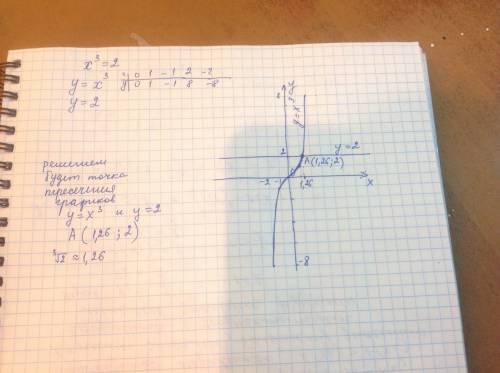 x³=2
y=x³
x 0 1 -1 2 -2
y 0 1 -1 8 -8
y=2
решением
будет точка
пересечения
графиков
y=x³ и y=2
A (1,26 ; 2)
³√2 ≈ 1,26
y=x³
y=2
2
A(1,26; 2)
-2 -1
1,26
x
-8